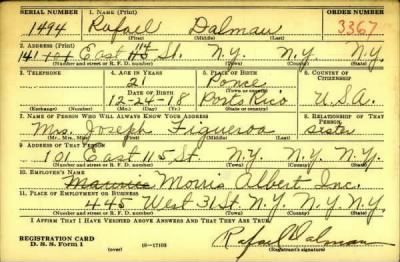 SERIAL NUMBER 1. NAME (Print) ORDER NUMBER
1494 Rafael Dalmau 3367
(First) (Middle) (Last)
2. ADDRESS (Print)
141 East 114 St. N.Y. N.Y. N.Y.
(Number and street or R. F. D. number) (Town) (County) (State)
3. TELEPHONE 4. AGE IN YEARS 5. PLACE OF BIRTH 6. COUNTRY OF CITIZENSHIP
21 Ponce
DATE OF BIRTH (Town or county)
12-24-18 Porto Rico U.S.A.
(Exchange) (Number) (Mo.) (Day) (Yr.) (State or country)
7. NAME OF PERSON WHO WILL ALWAYS KNOW YOUR ADDRESS 8. RELATIONSHIP OF THAT PERSON
Mrs. Joseph Figueroa sister
(Mr., Mrs., Miss) (First) (Middle) (Last)
9. ADDRESS OF THAT PERSON
101 East 115 St. N.Y. N.Y. N.Y.
(Number and street or R. F. D. number) (Town) (County) (State)
10. EMPLOYER'S NAME
Morris Albert Inc.
11. PLACE OF EMPLOYMENT OR BUSINESS
445 West 31 St. N.Y. N.Y. N.Y.
(Number and street or R. F. D. number) (Town) (County) (State)
I AFFIRM THAT I HAVE VERIFIED ABOVE ANSWERS AND THAT THEY ARE TRUE.
REGISTRATION CARD
D. S. S. Form 1 (over) 16—17105
Rafael Dalmau
(Registrant's signature)